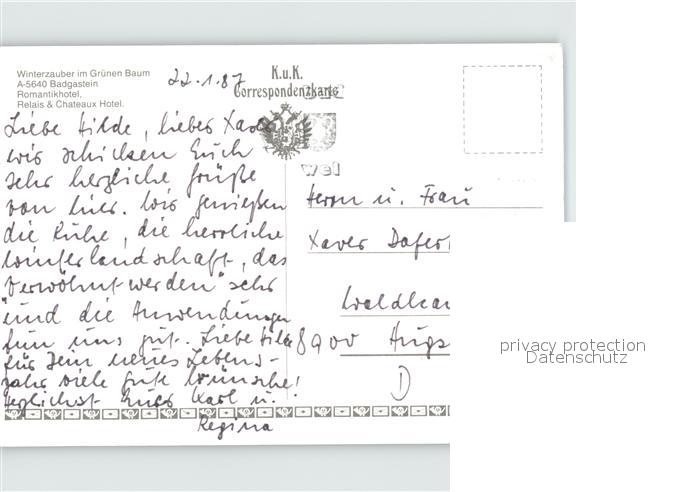 Winterzauber im Grünen Baum
A-5640 Badgastein
Romantikhotel,
Relais & Chateaux Hotel.
22.1.87
K.u.K.
Correspondenzkarte
Liebe Hilde, lieber Xaver
wir schicken Euch
sehr herzliche Grüße
von hier. Wir genießen
die Ruhe, die herrliche
Winterlandschaft, das
"Verwöhntwerden" sehr
und die Anwendungen
tun uns gut. Liebe Hilde
für Dein neues Lebens-
jahr viele gute Wünsche!
Herzlichst Eure Karl u.
Regina
wel
Herrn u. Frau
Xaver Dafer
Waldkau
8900 Augs
D
privacy protection
Datenschutz